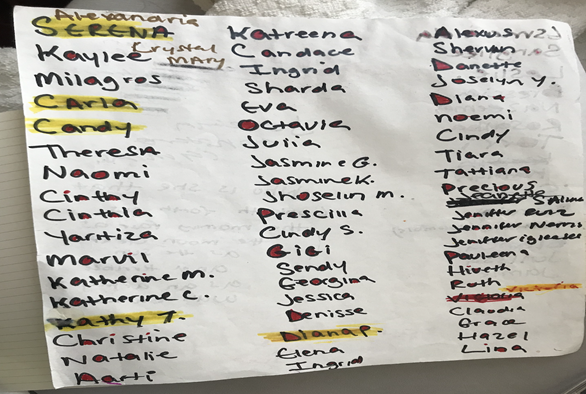 Alexandria
SERENA
Kaylee Krystal
MARY
Milagros
CARla
Candy
Theresa
Naomi
Cinthy
Cinthia
Yaritiza
Marvil
Katherine M.
Katherine C.
Kathy T.
Christine
Natalie
Aarti
Katreena
Candace
Ingrid
Sharda
Eva
Octavia
Julia
Jasmine G.
Jasmine K.
Jhoselin M.
Prescilla
Cindy S.
GiGi
Sendy
Georgina
Jessica
Denisse
Diana P.
Elena
Ingrid
Alexus
Danette
Joselyn Y.
Diana
noemi
Cindy
Tiara
Tattiana
Precious
Selina
Jennifer Cruz
Jennifer Norris
Jennifer iglesias
Pauleena
Ruth Victoria
Victoria
Claudia
Grace
Hazel
Lina